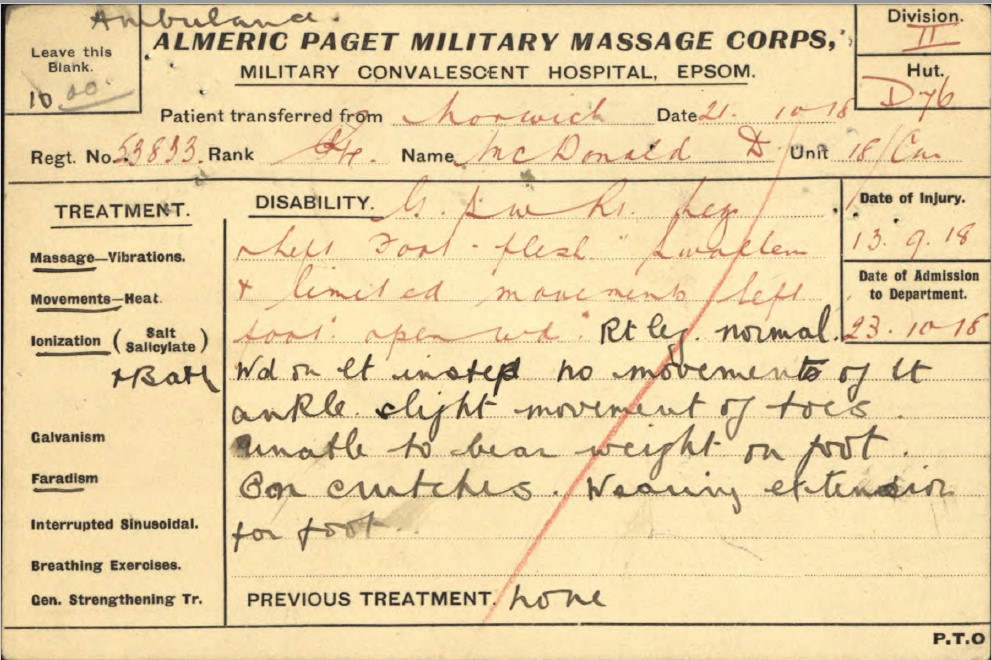 Ambulance.
Leave this
Blank.
10
ALMERIC PAGET MILITARY MASSAGE CORPS,
MILITARY CONVALESCENT HOSPITAL, EPSOM.
Division.
II
Hut.
D76
Patient transferred from Norwich Date 21. 10 18
Regt. No. 53833. Rank Pte. Name McDonald D Unit 18/Can
TREATMENT.
Massage—Vibrations.
Movements—Heat.
Ionization (Salt Salicylate)
+ Bath
Galvanism
Faradism
Interrupted Sinusoidal.
Breathing Exercises.
Gen. Strengthening Tr.
DISABILITY. G. S w Rt. Leg
& left Foot - flesh" Swollen
& limited movements left
foot" open wd" Rt leg normal.
Wd on lt instep no movements of lt
ankle. slight movement of toes.
unable to bear weight on foot.
On crutches. Wearing extension
for foot.
PREVIOUS TREATMENT. none
Date of Injury.
13. 9. 18
Date of Admission
to Department.
23. 10 18
P.T.O